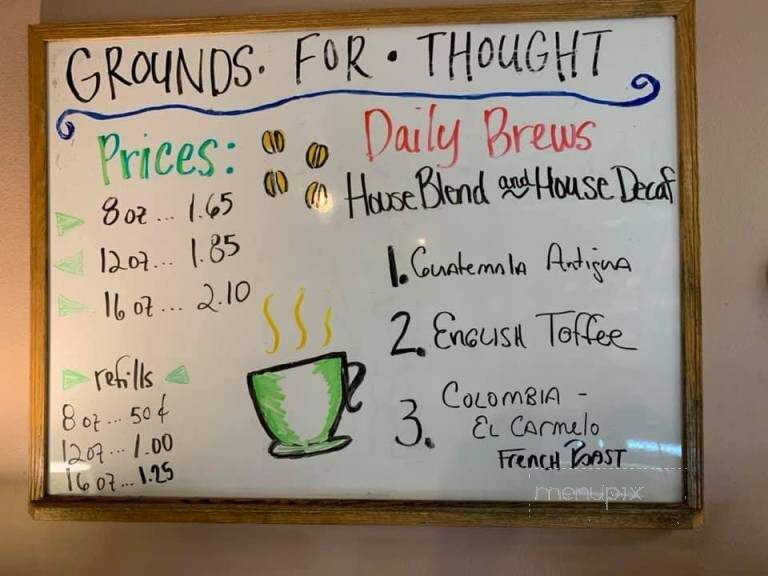 GROUNDS · FOR · THOUGHT
Prices:
8 oz ... 1.65
12 oz ... 1.85
16 oz ... 2.10
refills
8 oz ... 50¢
12 oz ... 1.00
16 oz ... 1.25
Daily Brews
House Blend and House Decaf
1. Guatemala Antigua
2. ENGLISH Toffee
3. COLOMBIA -
EL CARMELO
FRENCH ROAST
menupix